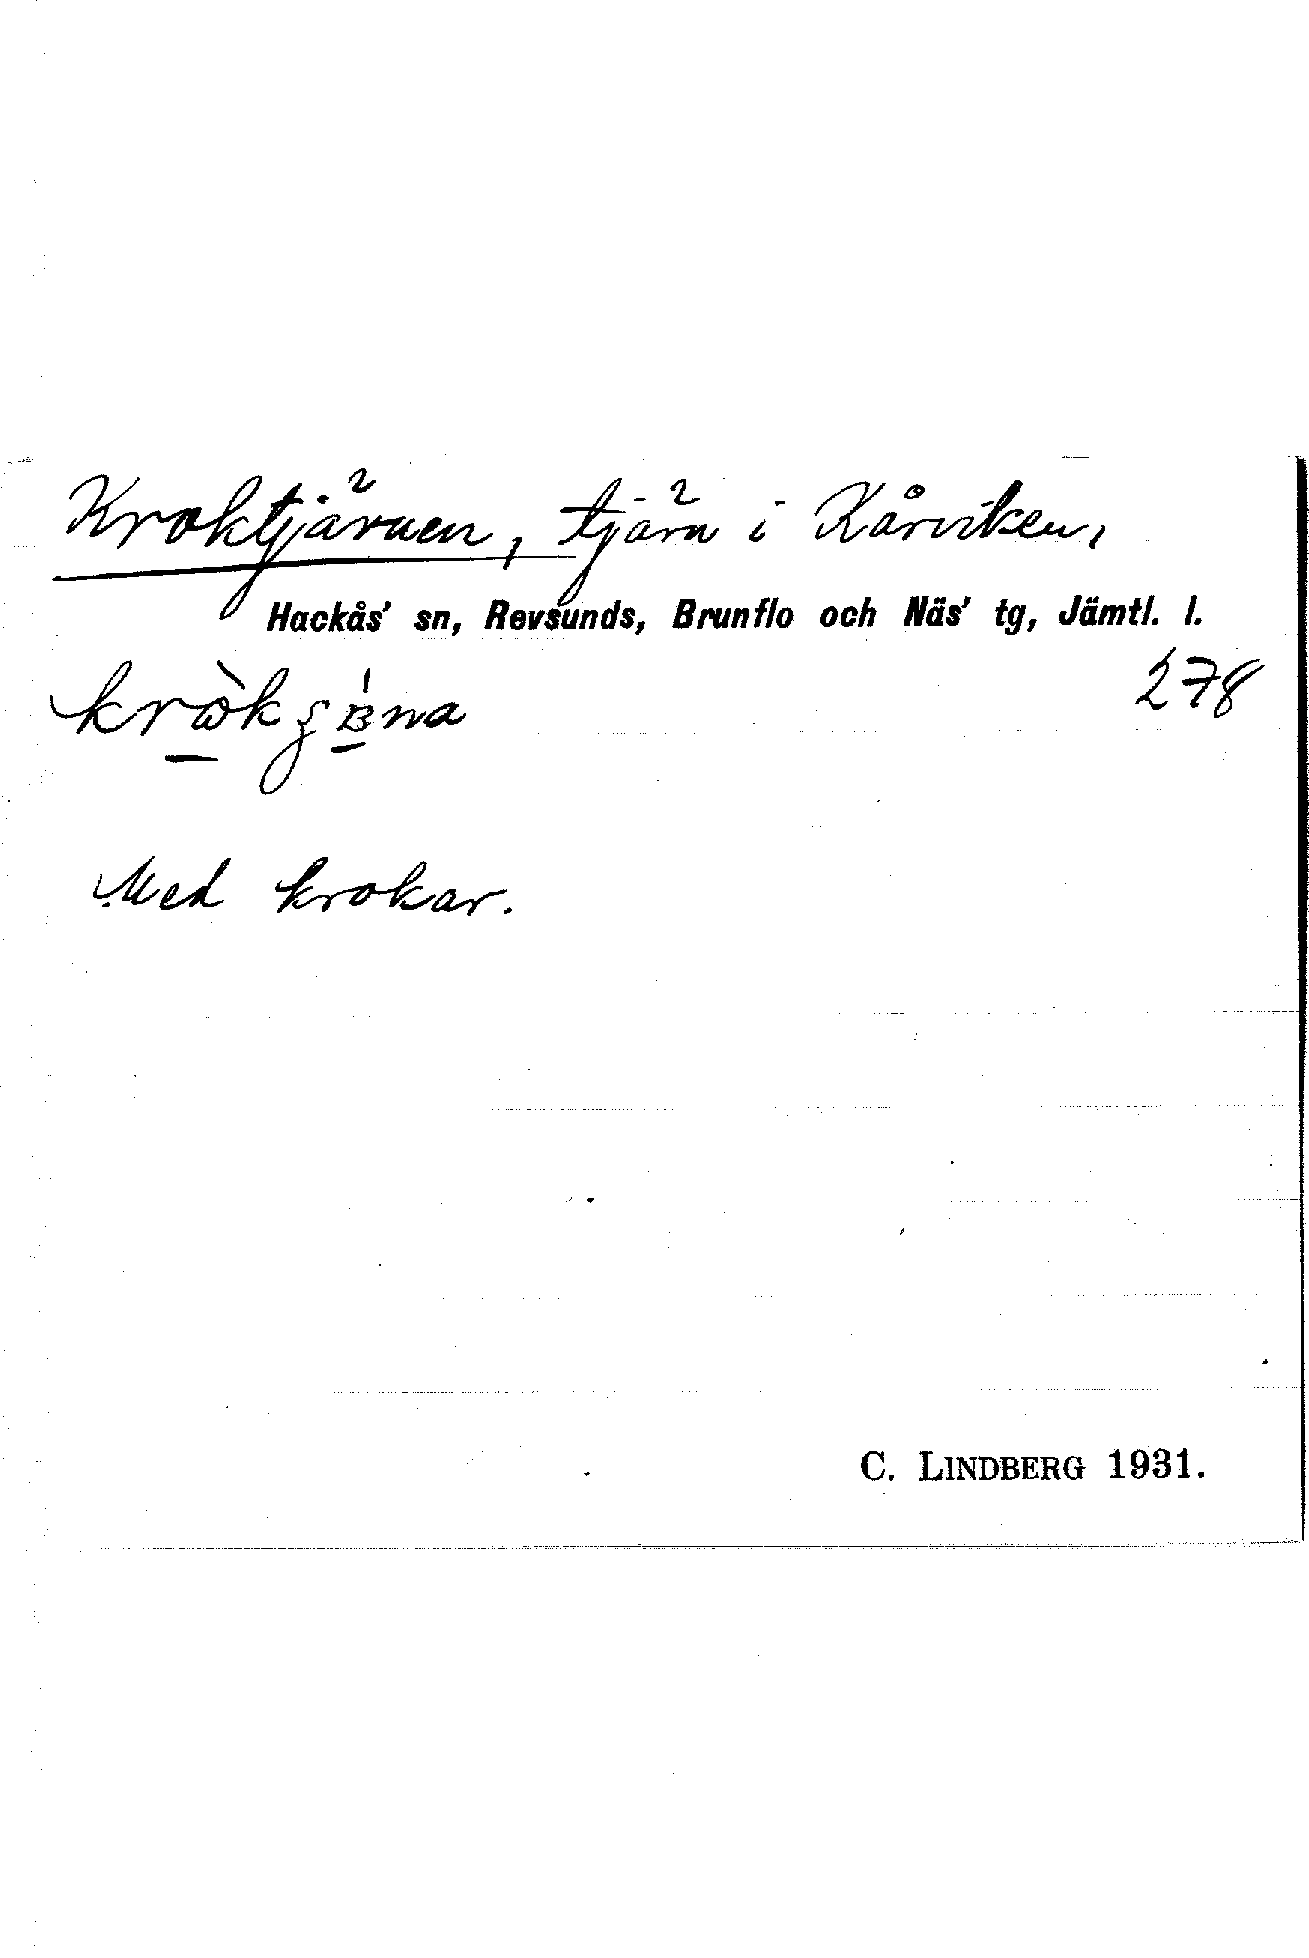 Kroktjärnen, tjärn i Kårviken,
Hackås' sn, Revsunds, Brunflo och Näs' tg, Jämtl. l.
278
Med krokar.
C. LINDBERG 1931.